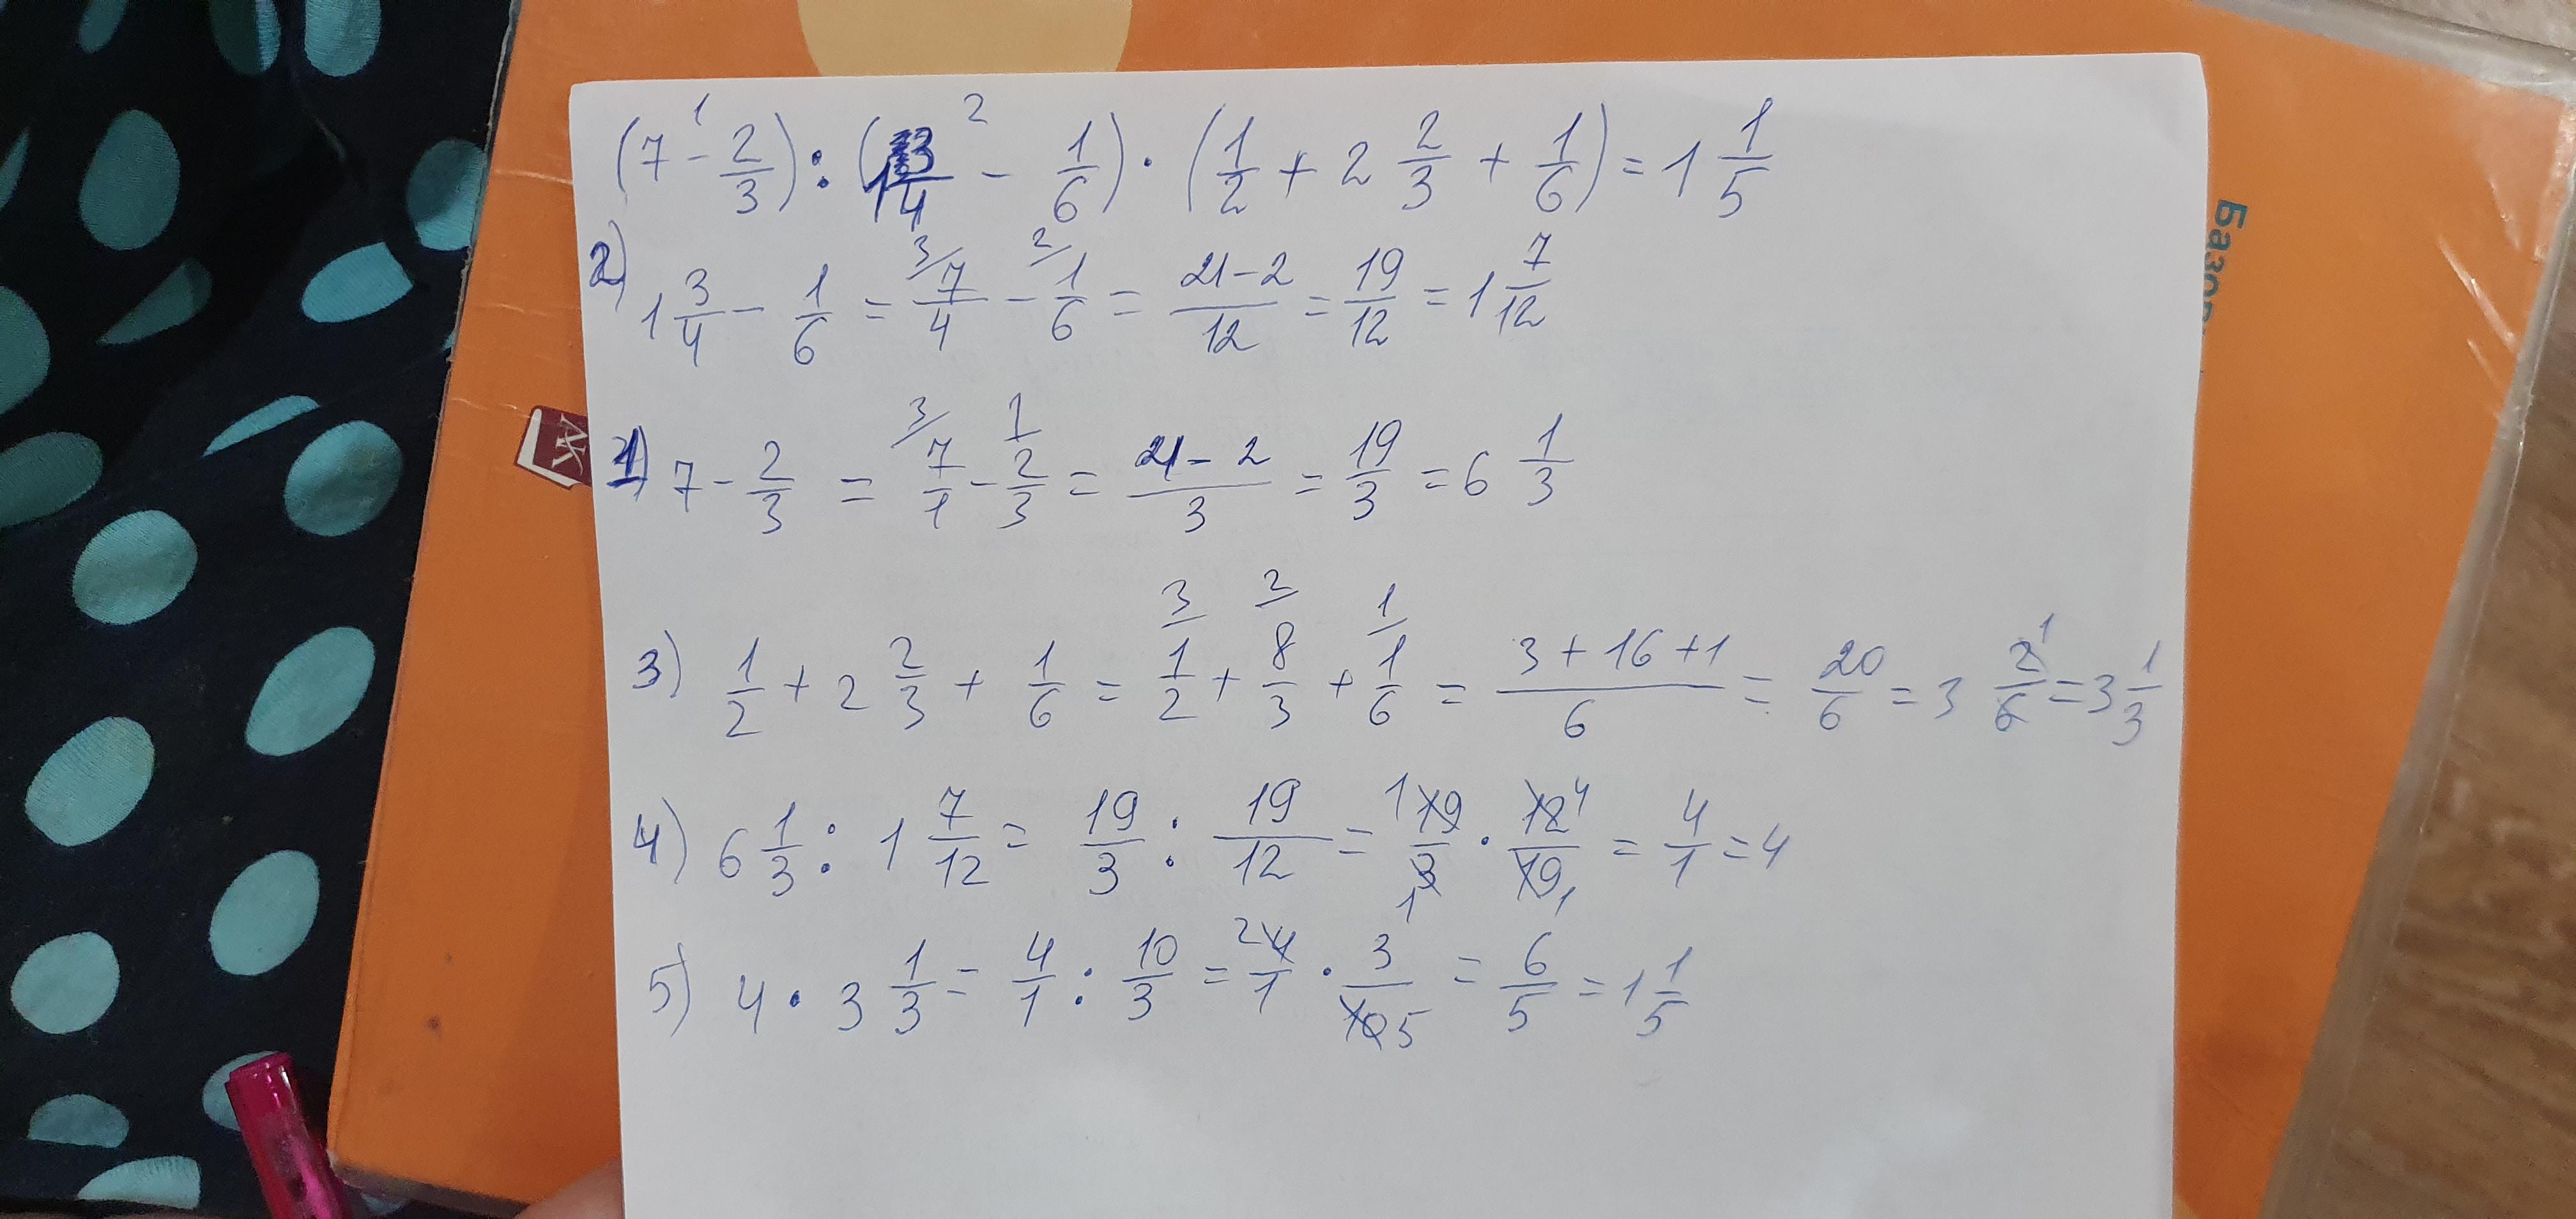 (7 - 2/3) : (1 3/4 - 1/6) · (1/2 + 2 2/3 + 1/6) = 1 1/5
1 2
2) 1 3/4 - 1/6 = 7/4 - 1/6 = 21-2/12 = 19/12 = 1 7/12
3/ 2/
1) 7 - 2/3 = 7/1 - 2/3 = 21-2/3 = 19/3 = 6 1/3
3/ 1/
3) 1/2 + 2 2/3 + 1/6 = 1/2 + 8/3 + 1/6 = 3+16+1/6 = 20/6 = 3 2/6 = 3 1/3
3/ 2/ 1/ 1
4) 6 1/3 : 1 7/12 = 19/3 : 19/12 = 19/3 · 12/19 = 4/1 = 4
1 4 1 1
5) 4 · 3 1/3 = 4/1 : 10/3 = 4/1 · 3/10 = 6/5 = 1 1/5
2 5
АК